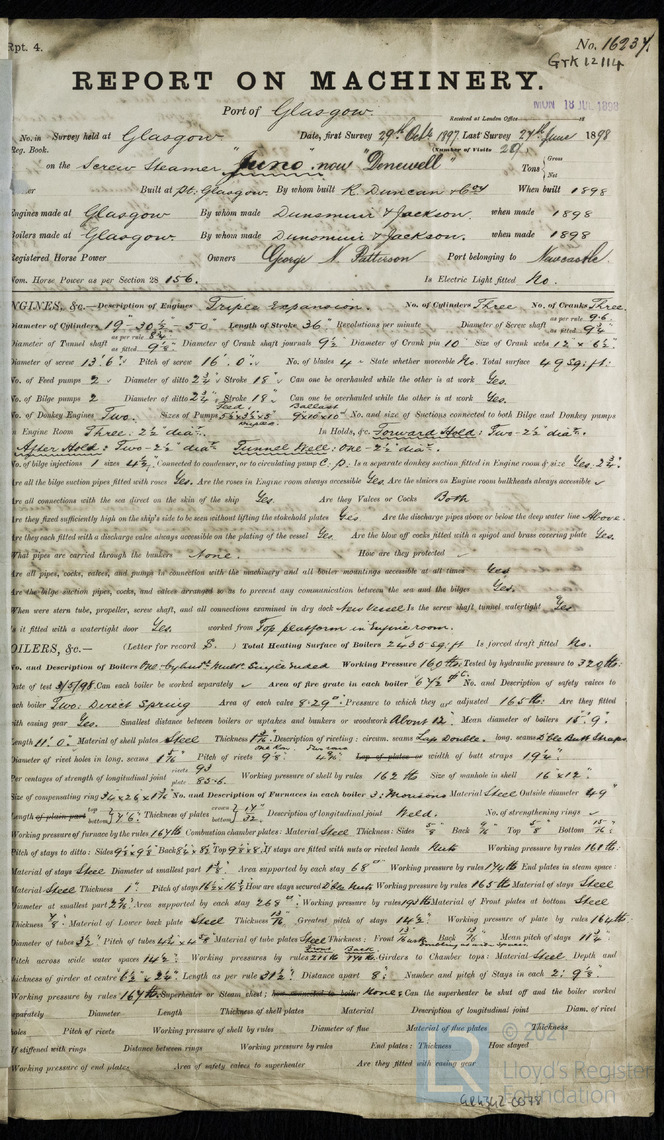 Rpt. 4.
No. 16237.
GTK 12114
REPORT ON MACHINERY.
Port of Glasgow.
Received at London Office
MON 18 JUL 1898
No. in Survey held at Glasgow Date, first Survey 29th Oct 1897 Last Survey 27th June 1898
Reg. Book. (Number of Visits 28)
on the Screw Steamer "Juno" now "Denewell" Tons Gross Net
Built at Pt. Glasgow. By whom built R. Duncan & Coy When built 1898
Engines made at Glasgow By whom made Dunsmuir & Jackson. when made 1898
Boilers made at Glasgow. By whom made Dunsmuir & Jackson. when made 1898
Registered Horse Power Owners George N. Patterson Port belonging to Newcastle
Nom. Horse Power as per Section 28 156. Is Electric Light fitted No.
ENGINES, &c.—Description of Engines Triple Expansion. No. of Cylinders Three No. of Cranks Three.
Diameter of Cylinders 19"-30½"-50 Length of Stroke 36" Revolutions per minute Diameter of Screw shaft as per rule 9.6 as fitted 9¾"
Diameter of Tunnel shaft as per rule as fitted 9⅛" Diameter of Crank shaft journals 9½ Diameter of Crank pin 10" Size of Crank webs 12" x 6½"
Diameter of screw 13'.6" Pitch of screw 16'.0" No. of blades 4 State whether moveable No. Total surface 49 sq. ft.
No. of Feed pumps 2 Diameter of ditto 2¾" Stroke 18" Can one be overhauled while the other is at work Yes.
No. of Bilge pumps 2 Diameter of ditto 2¾" Stroke 18" Can one be overhauled while the other is at work Yes.
No. of Donkey Engines Two. Sizes of Pumps Feed Ballast No. and size of Suctions connected to both Bilge and Donkey pumps
In Engine Room Three: 2½" diar. In Holds, &c. Forward Hold: Two-2½" diar.
After Hold: Two-2½" diar. Tunnel Well: One-2½" diar.
No. of bilge injections 1 sizes 4½" Connected to condenser, or to circulating pump C.P. Is a separate donkey suction fitted in Engine room & size Yes. 2¾"
Are all the bilge suction pipes fitted with roses Yes. Are the roses in Engine room always accessible Yes. Are the sluices on Engine room bulkheads always accessible
Are all connections with the sea direct on the skin of the ship Yes. Are they Valves or Cocks Both
Are they fixed sufficiently high on the ship's side to be seen without lifting the stokehold plates Yes Are the discharge pipes above or below the deep water line Above.
Are they each fitted with a discharge valve always accessible on the plating of the vessel Yes. Are the blow off cocks fitted with a spigot and brass covering plate Yes.
What pipes are carried through the bunkers None. How are they protected
Are all pipes, cocks, valves, and pumps in connection with the machinery and all boiler mountings accessible at all times Yes
Are the bilge suction pipes, cocks, and valves arranged so as to prevent any communication between the sea and the bilges Yes.
When were stern tube, propeller, screw shaft, and all connections examined in dry dock New Vessel Is the screw shaft tunnel watertight Yes
Is it fitted with a watertight door Yes. worked from Top platform in Engine room.
BOILERS, &c.— (Letter for record S.) Total Heating Surface of Boilers 2435 sq. ft Is forced draft fitted No.
No. and Description of Boilers One-Cylindl. Mult. Single Ended Working Pressure 160 lbs. Tested by hydraulic pressure to 320 lbs:
Date of test 3/5/98. Can each boiler be worked separately Area of fire grate in each boiler 67½ No. and Description of safety valves to
each boiler Two: Direct Spring Area of each valve 8.29" Pressure to which they are adjusted 165 lbs. Are they fitted
with easing gear Yes. Smallest distance between boilers or uptakes and bunkers or woodwork About 12" Mean diameter of boilers 15'.9"
Length 11'.0" Material of shell plates Steel Thickness Description of riveting: circum. seams Lap Double. long. seams Dble Butt Straps
Diameter of rivet holes in long. seams 1 5/16 Pitch of rivets 9⅛" Lap of plates or width of butt straps 19¼"
Per centages of strength of longitudinal joint rivets 93 plate 85.6 Working pressure of shell by rules 162 lb Size of manhole in shell 16" x 12"
Size of compensating ring 34 x 26 x 1 5/16 No. and Description of Furnaces in each boiler 3: Morisons Material Steel Outside diameter 49"
Length of plain part top bottom 7'.6" Thickness of plates crown bottom 17/32 Description of longitudinal joint Weld. No. of strengthening rings
Working pressure of furnace by the rules 167 lb Combustion chamber plates: Material Steel Thickness: Sides 5/8 Back 9/16 Top 5/8 Bottom 15/16
Pitch of stays to ditto: Sides 9½ x 9½ Back 8½ x 8½ Top 9⅛ x 8. If stays are fitted with nuts or riveted heads Nuts Working pressure by rules 160 lb:
Material of stays Steel Diameter at smallest part 1⅜ Area supported by each stay 68 Working pressure by rules 174 lb End plates in steam space:
Material Steel Thickness 1" Pitch of stays 16½ x 16¼ How are stays secured Dble Nuts Working pressure by rules 165 lb Material of stays Steel
Diameter at smallest part 2 9/16 Area supported by each stay 268 Working pressure by rules 193 lb Material of Front plates at bottom Steel
Thickness 7/8 Material of Lower back plate Steel Thickness 13/16 Greatest pitch of stays 14½" Working pressure of plate by rules 164 lb
Diameter of tubes 3½" Pitch of tubes 4¾ x 4⅝ Material of tube plates Steel Thickness: Front 13/16 Back 13/16 Mean pitch of stays 11¾
Pitch across wide water spaces 14½" Working pressures by rules Girders to Chamber tops: Material Steel Depth and
thickness of girder at centre 6½" x 2¼" Length as per rule 31½" Distance apart 8" Number and pitch of Stays in each 2: 9⅛"
Working pressure by rules 167 lb Superheater or Steam chest; how connected to boiler None; Can the superheater be shut off and the boiler worked
separately Diameter Length Thickness of shell plates Material Description of longitudinal joint Diam. of rivet
holes Pitch of rivets Working pressure of shell by rules Diameter of flue Material of flue plates Thickness
If stiffened with rings Distance between rings Working pressure by rules End plates: Thickness How stayed
Working pressure of end plates Area of safety valves to superheater Are they fitted with easing gear
© 2021
LR
Lloyd's Register
Foundation